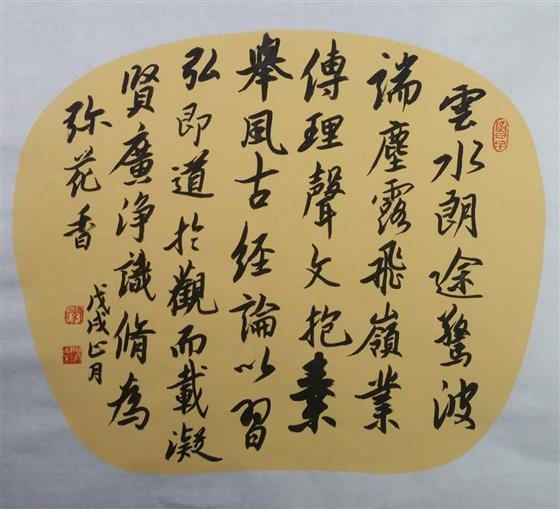 雲水朗途驚波
端塵露飛嶺業
傳理聲文抱素
舉風古经論以習
弘即道於觀而載凝
賢廣浄識脩為
弥花香
戊戌正月